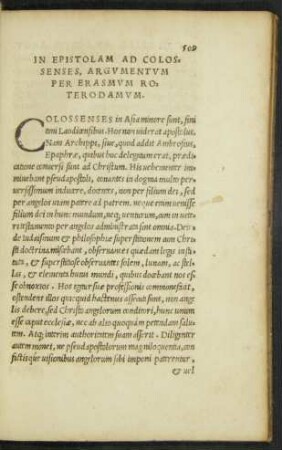 509
IN EPISTOLAM AD COLOS-
SENSES, ARGVMENTVM
PER ERASMVM RO-
TERODAMVM.
COLOSSENSES in Asia minore sunt, fini
timi Laodicensibus. Hos non uiderat apostolus.
Nam Archippi, siue, quod addit Ambrosius,
Epaphræ, quibus hoc delegatum erat, prædi-
catione conuersi sunt ad Christum. His uehementer im
minebant pseudapostoli, conantes in dogma multo per-
uersissimum inducere, docentes, non per filium dei, sed
per angelos uiam patere ad patrem. neque enim uenisse
filium dei in hunc mundum, negauerunt, cum in uete-
ri testamento per angelos administratæ sint omnia. Dein
de Iudaismum & philosophiæ superstitionem cum Chri
sti doctrina miscebant, obseruantes quædam legis instituta,
& superstitiose obseruantes solem, lunam, ac stel-
las, & elementa huius mundi, quibus docebant nos es-
se obnoxios. Hos igitur suæ professionis commonefacit,
ostendens illos quicquid hactenus assecuti sunt, non ange
lis debere, sed Christo angelorum conditori, hunc unum
esse caput ecclesiæ, nec ab alio quoquam petendam salu-
tem. Atque interim authoritatem suam asserit. Diligenter
autem monet, ne pseudapostolorum magniloquentia, con
fictisque uisionibus angelorum sibi imponi paterentur,
& uel